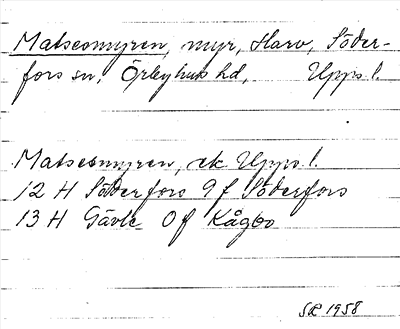 Matsesmyren, myr, Harv, Söder-
fors sn, Örbyhus hd, Upps l.
Matsesmyren, ek Upps l.
12 H Söderfors 9 f Söderfors
13 H Gävle 0 f Kågbo
SR 1958